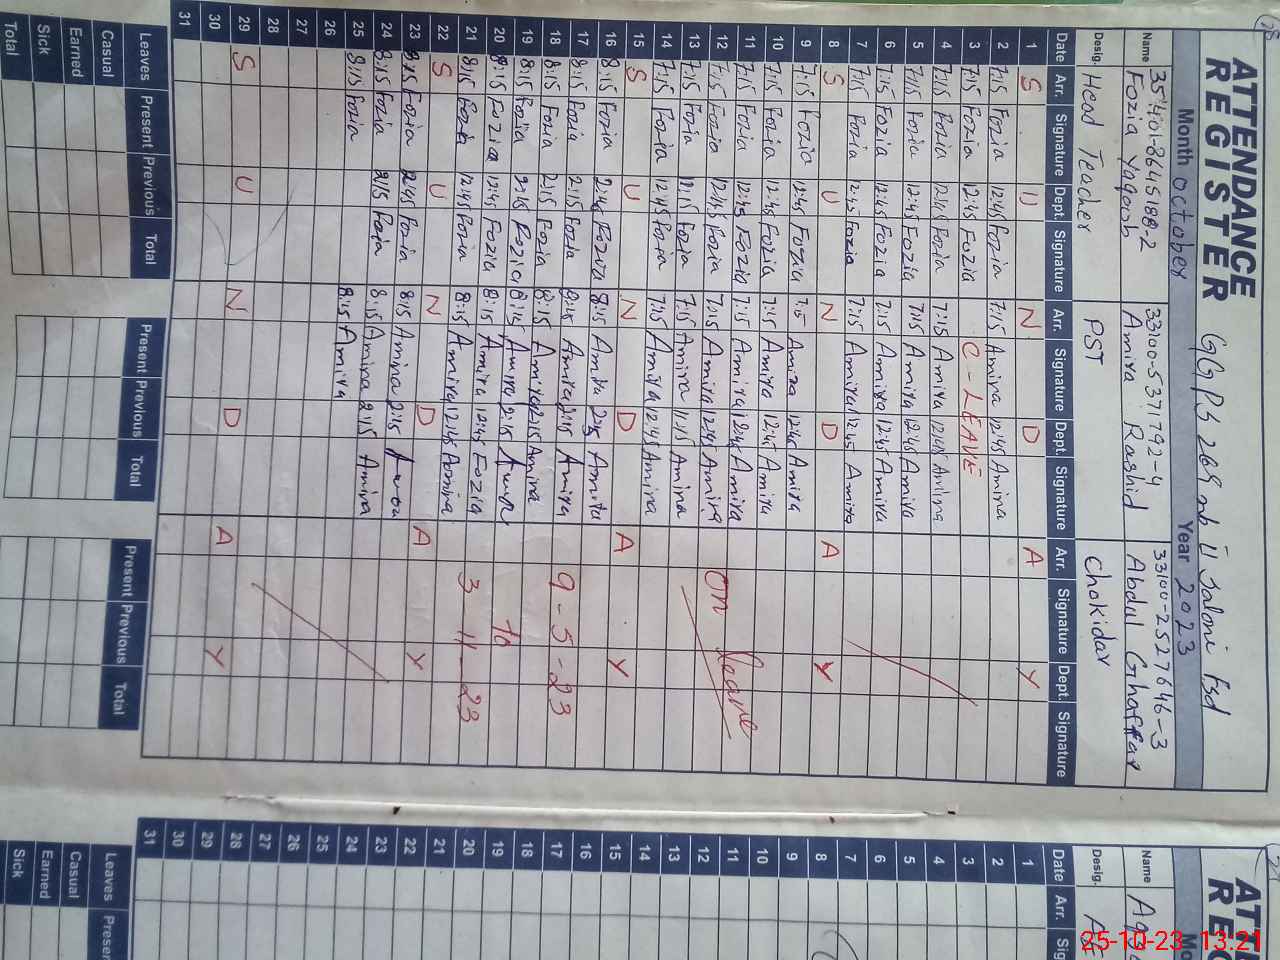 ATTENDANCE REGISTER
GGPS 269 RB
Month October Year 2023
35401-8645188-2 33100-5371792-4 33100-2527646-3
Name Fozia Yaqoob Amina Rashid Abdul Ghaffar
Desig. Head Teacher PST Chokidar
Date Arr. Signature Dept. Signature Arr. Signature Dept. Signature Arr. Signature Dept. Signature
1 S U N D A Y
2 7:15 Fozia 12:45 Fozia 7:15 Amina 12:45 Amina
3 7:15 Fozia 12:45 Fozia C-LEAVE
4 7:15 Fozia 12:45 Fozia 7:15 Amina 12:45 Amina
5 7:15 Fozia 12:45 Fozia 7:15 Amina 12:45 Amina
6 7:15 Fozia 12:45 Fozia 7:15 Amina 12:45 Amina
7 7:15 Fozia 12:45 Fozia 7:15 Amina 12:45 Amina
8 S U N D A Y
9 7:15 Fozia 12:45 Fozia 7:15 Amina 12:45 Amina
10 7:15 Fozia 12:45 Fozia 7:15 Amina 12:45 Amina
11 7:15 Fozia 12:45 Fozia 7:15 Amina 12:45 Amina
12 7:15 Fozia 12:45 Fozia 7:15 Amina 12:45 Amina On leave
13 7:15 Fozia 11:15 Fozia 7:15 Amina 11:15 Amina
14 7:15 Fozia 12:45 Fozia 7:15 Amina 12:45 Amina
15 S U N D A Y
16 8:15 Fozia 2:45 Fozia 8:15 Amina Amina
17 8:15 Fozia 2:15 Fozia 8:15 Amina 2:15 Amina 9-5-23
18 8:15 Fozia 2:15 Fozia 8:15 Amina 2:15 Amina
19 8:15 Fozia 2:15 Fozia 8:15 Amina 2:15
20 8:15 Fozia 12:45 Fozia 8:15 Amina 12:45 Fozia to
21 8:15 Fozia 12:45 Fozia 8:15 Amina 12:45 Amina 3-11-23
22 S U N D A Y
23 8:15 Fozia 2:15 Fozia 8:15 Amina 2:15
24 8:15 Fozia 2:15 Fozia 8:15 Amina 2:15 Amina
25 8:15 Fozia 8:15 Amina
26
27
28
29 S U N D A Y
30
31
Leaves Present Previous Total Present Previous Total Present Previous Total
Casual
Earned
Sick
Total
Name
Desig.
Date Arr.
1
2
3
4
5
6
7
8
9
10
11
12
13
14
15
16
17
18
19
20
21
22
23
24
25
26
27
28
29
30
31
Leaves
Casual
Earned
Sick
25-10-23 13:21